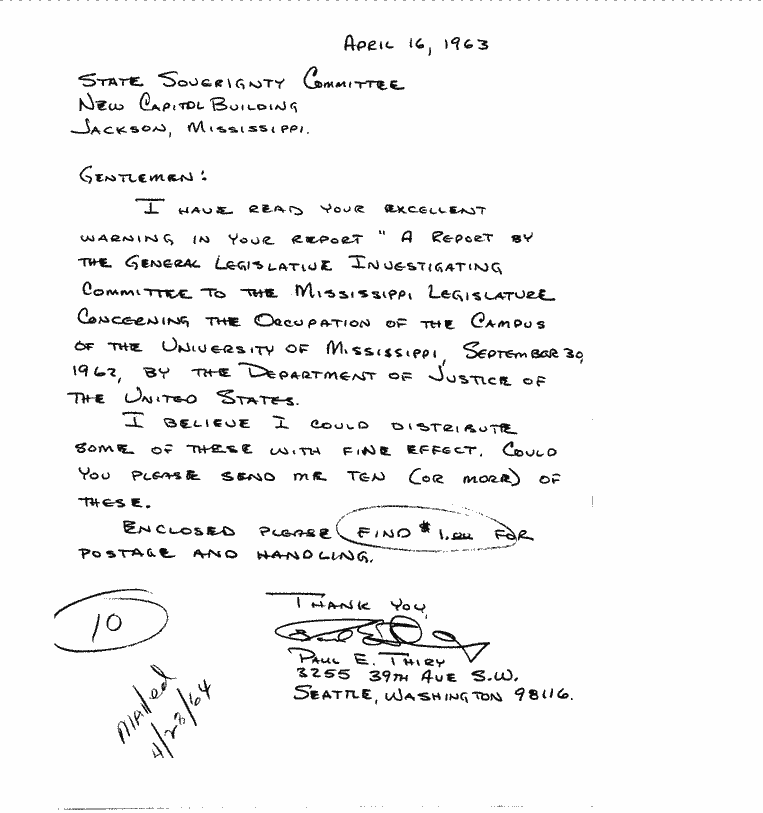 APRIL 16, 1963
STATE SOVERIGNTY COMMITTEE
NEW CAPITOL BUILDING
JACKSON, MISSISSIPPI.
GENTLEMEN:
I HAVE READ YOUR EXCELLENT
WARNING IN YOUR REPORT "A REPORT BY
THE GENERAL LEGISLATIVE INVESTIGATING
COMMITTEE TO THE MISSISSIPPI LEGISLATURE
CONCERNING THE OCCUPATION OF THE CAMPUS
OF THE UNIVERSITY OF MISSISSIPPI, SEPTEMBER 30,
1962, BY THE DEPARTMENT OF JUSTICE OF
THE UNITED STATES.
I BELIEVE I COULD DISTRIBUTE
SOME OF THESE WITH FINE EFFECT. COULD
YOU PLEASE SEND ME TEN (OR MORE) OF
THESE.
ENCLOSED PLEASE FIND $1.00 FOR
POSTAGE AND HANDLING.
THANK YOU,
PAUL E. THIRY
3255 39TH AVE S.W.
SEATTLE, WASHINGTON 98116.
10
Mailed
4/23/64